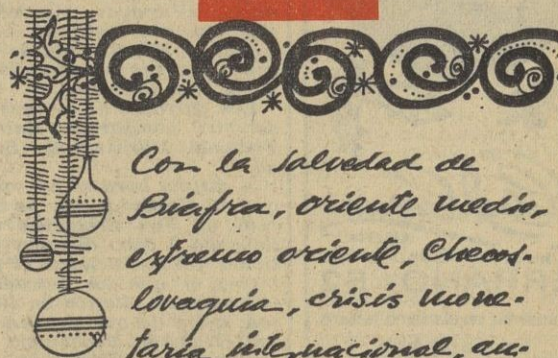 Con la salvedad de
Biafra, oriente medio,
extremo oriente, Checos-
lovaquia, crisis mone-
taria internacional au-